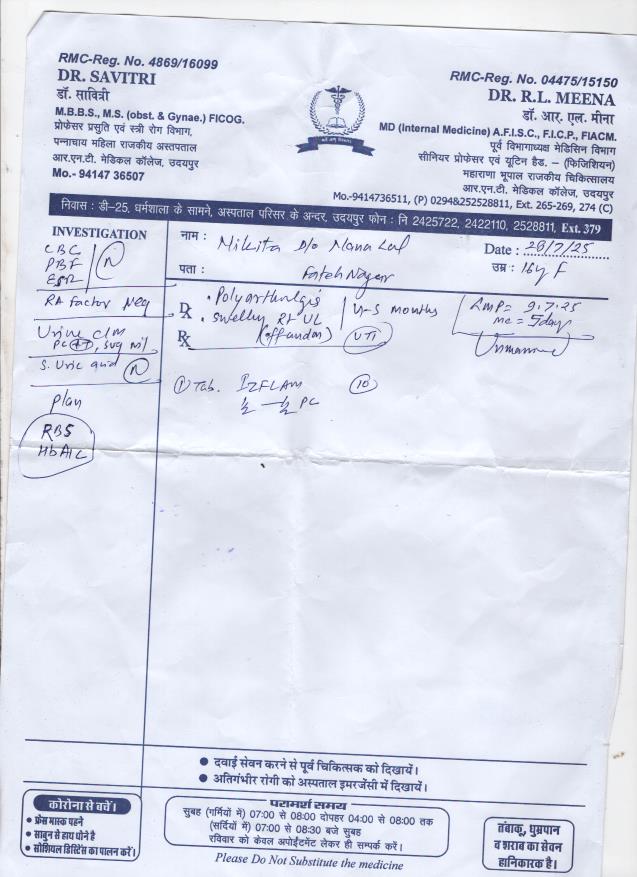 RMC-Reg. No. 4869/16099
DR. SAVITRI
डॉ. सावित्री
M.B.B.S., M.S. (obst. & Gynae.) FICOG.
प्रोफेसर प्रसुति एवं स्त्री रोग विभाग,
पन्नाधाय महिला राजकीय अस्तपताल
आर.एन.टी. मेडिकल कॉलेज, उदयपुर
Mo.- 94147 36507
RMC-Reg. No. 04475/15150
DR. R.L. MEENA
डॉ. आर. एल. मीना
MD (Internal Medicine) A.F.I.S.C., F.I.C.P., FIACM.
पूर्व विभागाध्यक्ष मेडिसिन विभाग
सीनियर प्रोफेसर एवं यूटिन हैड. – (फिजिशियन)
महाराणा भूपाल राजकीय चिकित्सालय
आर.एन.टी. मेडिकल कॉलेज, उदयपुर
Mo.-9414736511, (P) 0294&252528811, Ext. 265-269, 274 (C)
निवास : डी-25, धर्मशाला के सामने, अस्पताल परिसर के अन्दर, उदयपुर फोन : नि 2425722, 2422110, 2528811, Ext. 379
INVESTIGATION
CBC
PBF
ESR
N
RA factor Neg
Urine c/m
PC ++, sug nil
S. Uric acid N
Plan
RBS
HbA1c
नाम : Mikita D/o Nana Lal
Date : 28/7/25
पता : Fateh Nagar
उम्र : 16y F
Dx • Polyarthralgia
• Swelling Rt UL
4-5 months
LMP = 9.7.25
mc = 5day
Rx
UTI
① Tab. IZFLAM ⑩
½ — ½ PC
● दवाई सेवन करने से पूर्व चिकित्सक को दिखायें।
● अतिगंभीर रोगी को अस्पताल इमरजेंसी में दिखायें।
कोरोना से बचें।
• फ्रेस मास्क पहने
• साबुन से हाथ धोने है
• सोशियल डिस्टिंस का पालन करें।
परामर्श समय
सुबह (गर्मियों में) 07:00 से 08:00 दोपहर 04:00 से 08:00 तक
(सर्दियों में) 07:00 से 08:30 बजे सुबह
रविवार को केवल अपोईंटमेंट लेकर ही सम्पर्क करें।
Please Do Not Substitute the medicine
तंबाकू, धुम्रपान
व शराब का सेवन
हानिकारक है।